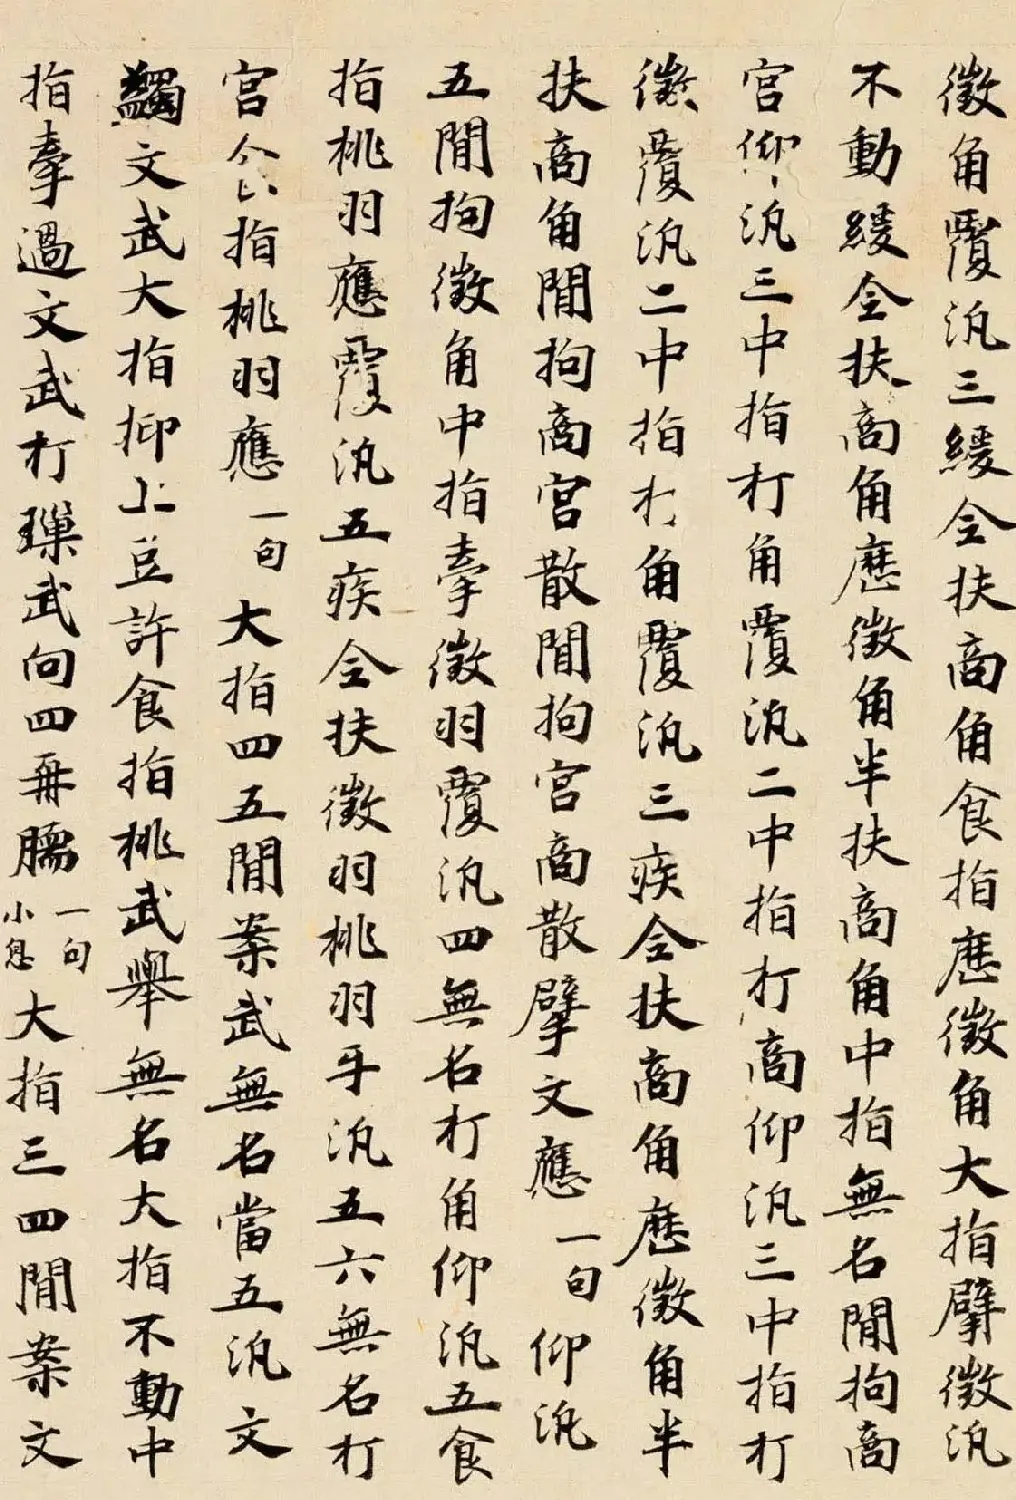 徵角覆汎三緩全扶商角食指歷徵角大指擘徵汎
不動緩全扶商角歷徵角半扶商角中指無名間拘商
宮仰汎三中指打角覆汎二中指打商仰汎三中指打
徵覆汎二中指打角覆汎三疾全扶商角歷徵角半
扶商角間拘商宮散間拘宮商散擘文應一句仰汎
五間拘徵角中指牽徵羽覆汎四無名打角仰汎五食
指桃羽應覆汎五疾全扶徵羽桃羽牙汎五六無名打
宮食指桃羽應一句大指四五間案武無名當五汎文
蠲文武大指抑上豆許食指桃武舉無名大指不動中
指牽過文武打璅武向四冊臑一句小息大指三四間案文